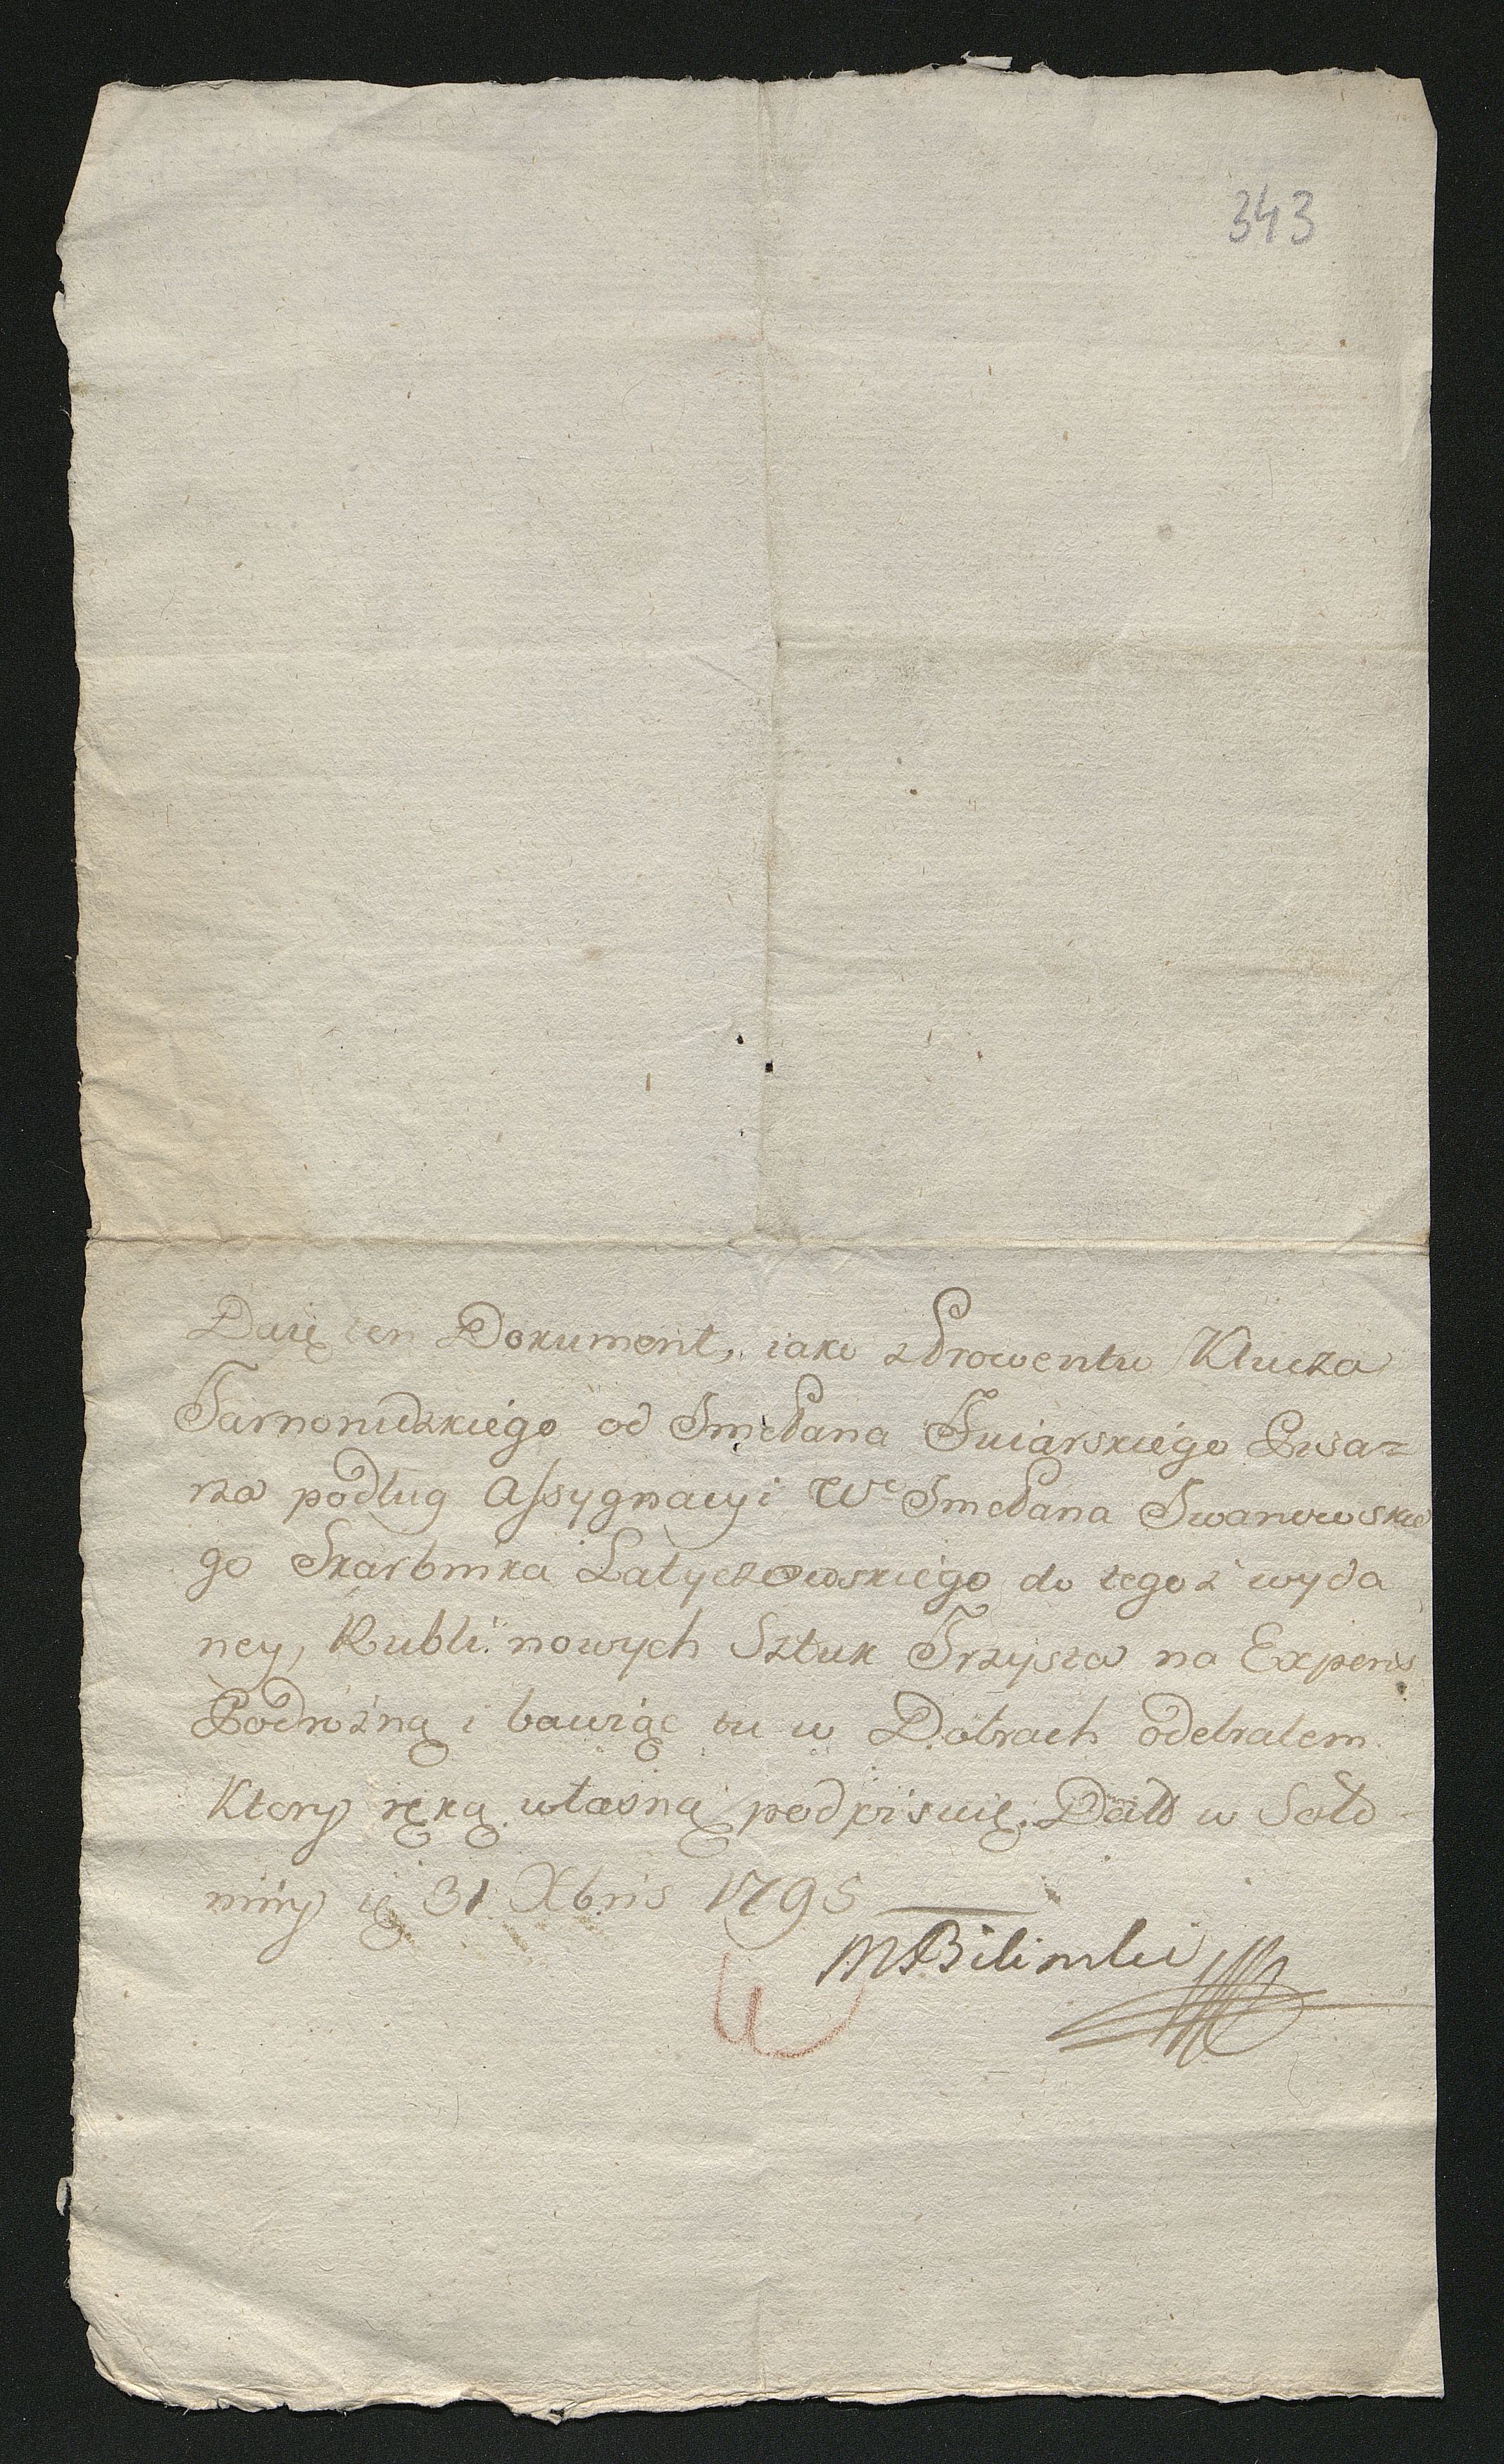 343
Daię ten Dokument, iako z Prowentu Klucza
Tarnorudzkiego od Jmć Pana Pisa=
rza podług Assygnacyi Wº Jmć Pana Iwanowskie
go Skarbnika Latyczowskiego do tegoż wyda
ney, Rubli nowych Sztuk Trzysta na Expens
Podrożną i bawiąc tu w Dobrach odebrałem
Ktory ręką własną podpisuię. Datt w
ię 31 Xbris 1795
MBilinski